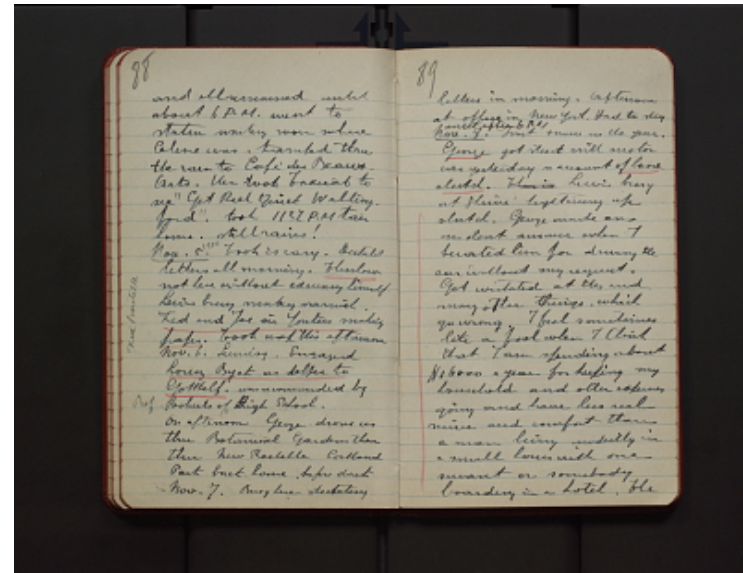 88
and all remained until
about 6 P.M. went to
station waiting room where
Celine was. tramped thru
the rain to Café des Beaux
Arts. then took to
see "Get Rich Quick Walling-
ford". took 11 27 P.M train
home. still rains!
Nov. 5th. Took is easy. Dictated
letters all morning.
not here without excusing himself
being busy married.
Ted and Joe in Yonkers making
paper. took nap this afternoon
Nov. 6. Sunday. Engaged
as helper to
Gotthelf. recommended by
Prof. Roberts of High School.
On afternoon George drove us
thru Botanical Gardens then
thru New Rochelle Cortland
Park back home. before dark
Nov. 7. Busy here dictating
89
letters in morning. Afternoon
at office in New York. Had to stay
until after 6 P.M.
Nov. 9. snow no this year.
George got stuck with motor
car yesterday on account of
clutch. Lewis busy
at tightening up
clutch. George made an
insolent answer when I
berated him for driving the
car without my request.
Got irritated at this and
many other things which
go wrong. I feel sometimes
like a fool when I think
that I am spending about
$16000 a year for keeping my
household and other expenses
going and have less real
and comfort than
a man living modestly in
a small house with one
servant or somebody
boarding in a hotel. The